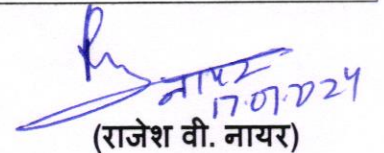 नायर
17.07.2024
(राजेश वी. नायर)